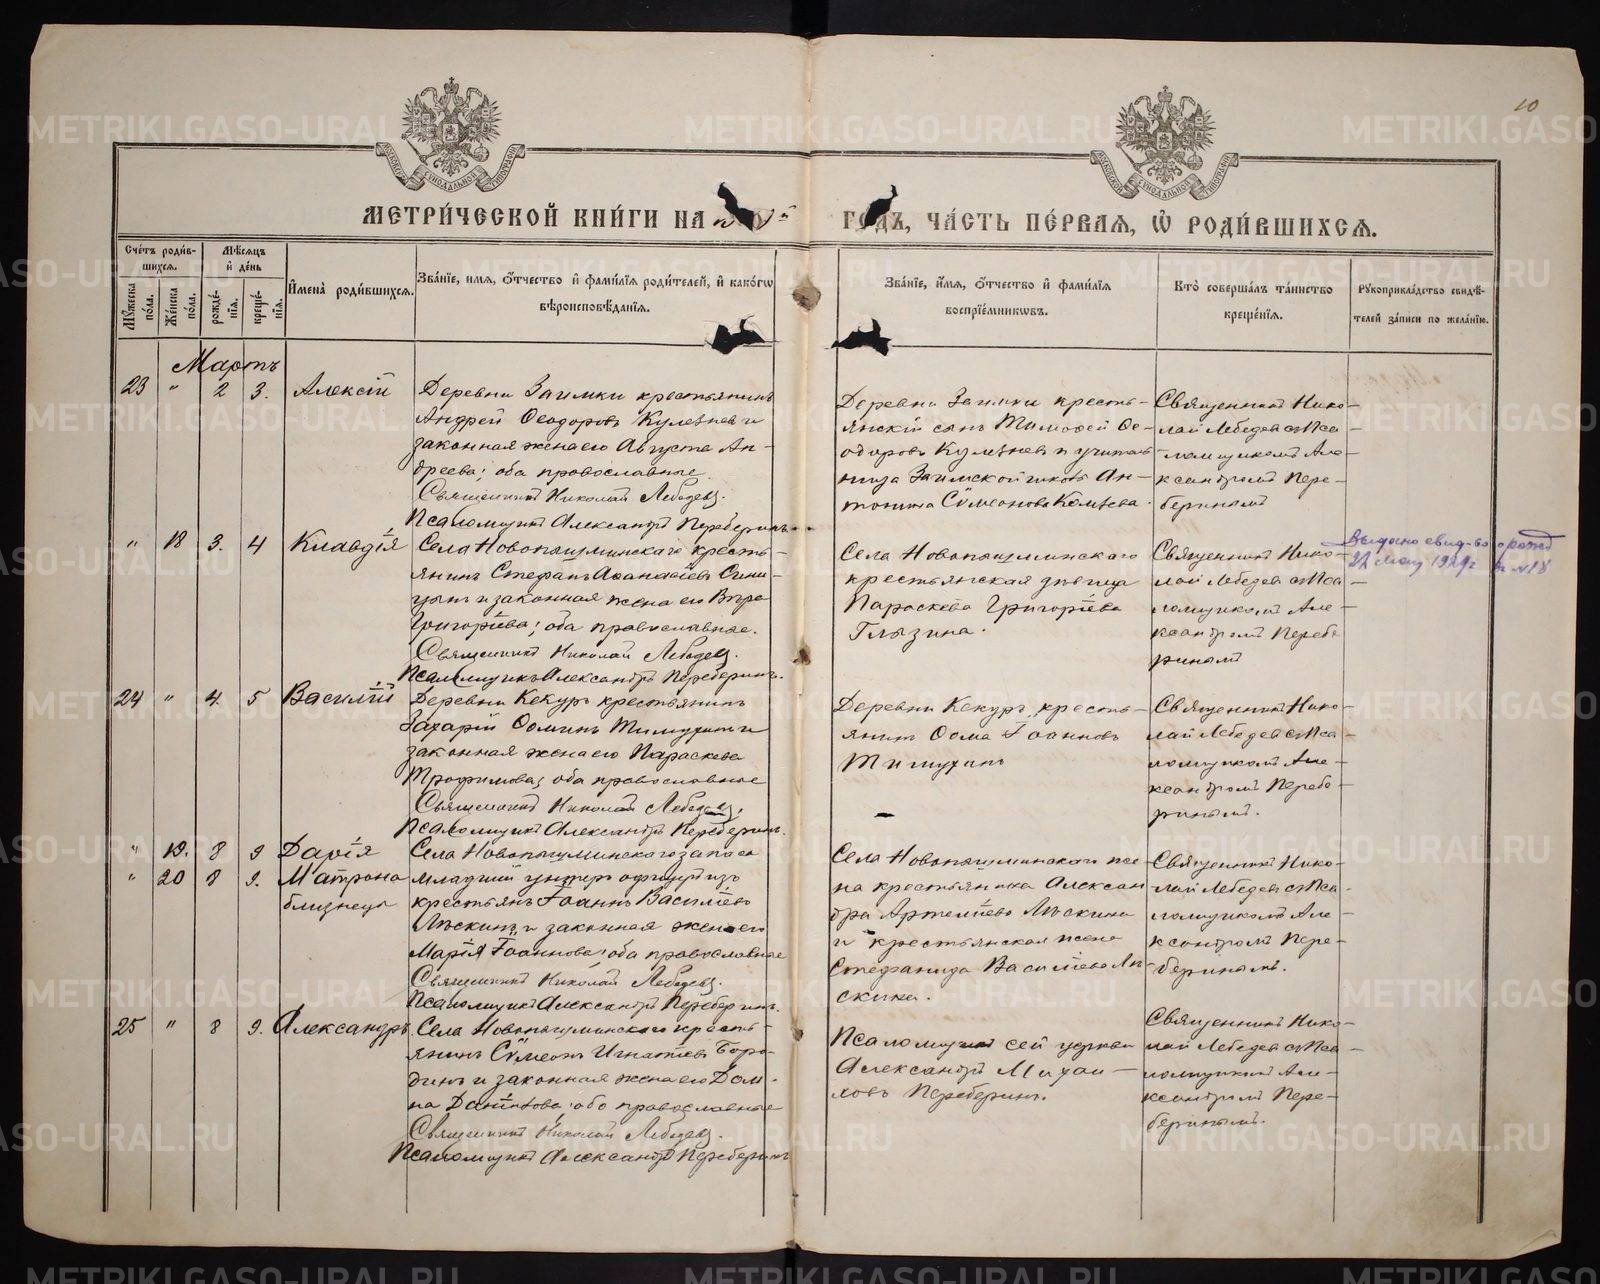 10
МЕТРИ́ЧЕСКОЙ КНИ́ГИ НА ГОДЪ, ЧА́СТЬ ПЕ́РВАЯ, Ѡ РОДИ́ВШИХСЯ.
Сче́тъ роди́вшихся.
Мꙋ́жеска по́ла.
Же́нска по́ла.
Мѣ́сяцъ и҆ де́нь
рожде́нїя.
креще́нїя.
И҆мена̀ роди́вшихся.
Зва́нїе, имя, о́тчество и҆ фами́лїя роди́телей, и҆ како́гѡ вѣроисповѣ́данїя.
Зва́нїе, и҆́мя, о́тчество и҆ фами́лїя воспрїе́мникѡвъ.
Кто̀ соверша́лъ та́инство креще́нїя.
Рꙋкоприкла́дство свидѣ́телей за́писи по жела́нїю.
Мартъ
23 " 2 3. Алексій
Деревни Заимки крестьянинъ
Андрей Ѳеодоровъ Кулезневъ и
законная жена его Августа Ан-
дреева; оба православные.
Священникъ Николай Лебедевъ.
Псаломщикъ Александръ Переберинъ.
Деревни Заимки кресть-
янскій сынъ Тимоѳей Ѳе-
одоровъ Кулезневъ и учитель-
ница Заимской школы Ан-
тонина Сѵмеонова
Священникъ Нико-
лай Лебедевъ съ Пса-
ломщикомъ Але-
ксандромъ Пере-
беринымъ
" 18 3. 4 Клавдія
Села Новопышминскаго кресть-
янинъ Стефанъ Аѳанасіевъ Сини-
цынъ и законная жена его Вѣра
Григоріева; оба православные.
Священникъ Николай Лебедевъ.
Псаломщикъ Александръ Переберинъ.
Села Новопышминскаго
крестьянская дѣвица
Параскева Григоріева
Глызина.
Священникъ Нико-
лай Лебедевъ съ Пса-
ломщикомъ Але-
ксандромъ Перебе-
ринымъ
Выдано свид-во о рожд
22 мая 1929 г за № 18
24 " 4. 5 Василій
Деревни Кекуръ крестьянинъ
Захарій Ѳоминъ Тимухинъ и
законная жена его Параскева
Трофимова; оба православные
Священникъ Николай Лебедевъ.
Псаломщикъ Александръ Переберинъ.
Деревни Кекуръ кресть-
янинъ Ѳома Іоанновъ
Тимухинъ
Священникъ Нико-
лай Лебедевъ съ Пса-
ломщикомъ Але-
ксандромъ Перебе-
ринымъ.
" 19. 8 9 Дарія
" 20 8 9. Матрона
близнецы
Села Новопышминскаго запасн
младшій унтеръ офицеръ изъ
крестьянъ Іоаннъ Васильевъ
Лѣскинъ и законная жена его
Марія Іоаннова; оба православные
Священникъ Николай Лебедевъ.
Псаломщикъ Александръ Переберинъ.
Села Новопышминскаго же-
на крестьянина Алексан-
дра Артеміева Лѣскина
и крестьянская жена
Стефанида Васильева Лѣ-
скина.
Священникъ Нико-
лай Лебедевъ съ Пса-
ломщикомъ Але-
ксандромъ Пере-
беринымъ.
25 " 8 9. Александръ
Села Новопышминскаго кресть-
янинъ Сѵмеонъ Игнатіевъ Боро-
динъ и законная жена его Дом-
на Данилова; оба православные
Священникъ Николай Лебедевъ.
Псаломщикъ Александръ Переберинъ
Псаломщикъ сей церкви
Александръ Михаи-
ловъ Переберинъ.
Священникъ Нико-
лай Лебедевъ съ Пса-
ломщикомъ Але-
ксандромъ Пере-
беринымъ.
METRIKI.GASO-URAL.RU